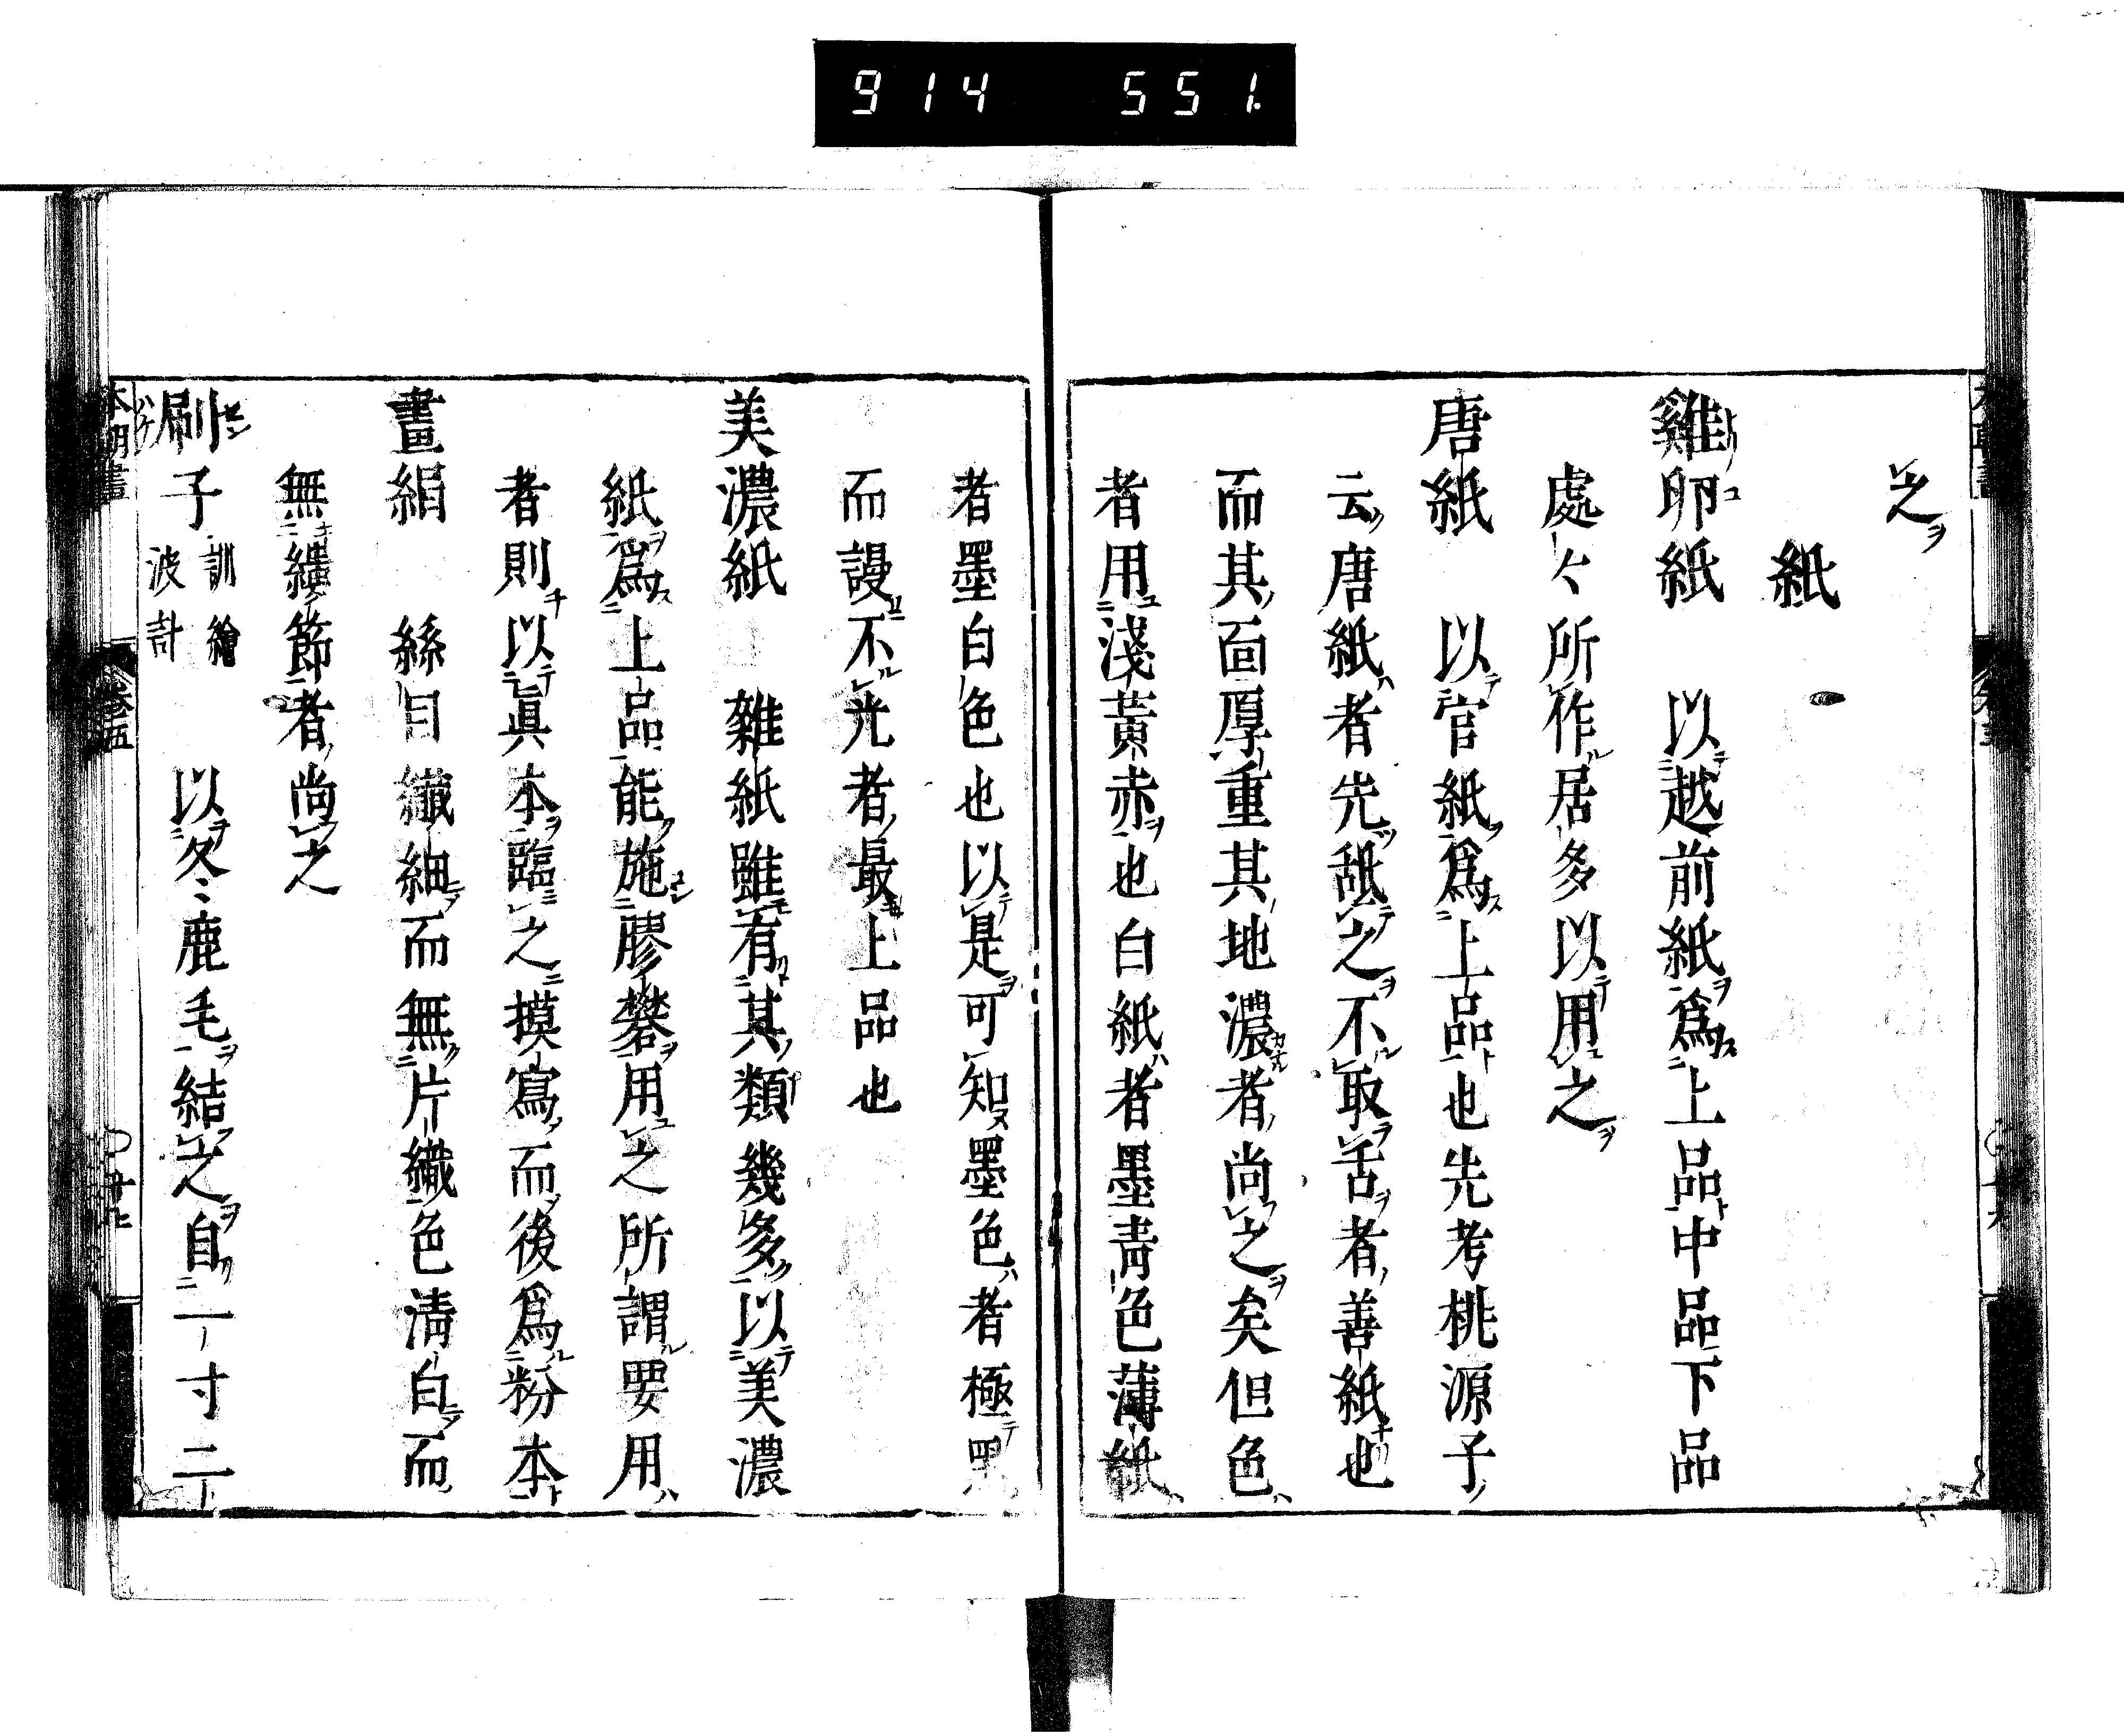 914 551.
之
紙
雞卵紙 以越前紙爲上品中品下品
處々所作居多以用之
唐紙 以官紙爲上品也先考桃源子
云唐紙者先舐之不取舌者善紙也
而其面厚重其地濃者尚之矣但色
者用淺黃赤也白紙者墨青色薄紙
者墨白色也以是可知墨色者極黑
而謾不光者最上品也
美濃紙 雜紙雖有其類幾多以美濃
紙爲上品能施膠礬用之所謂要用
者則以眞本臨之摸寫而後爲粉本
畫絹 絲目纖細而無片織色淸白而
無纇節者尚之
刷子 訓繪波計 以冬鹿毛結之自一寸二
本朝畫 卷五